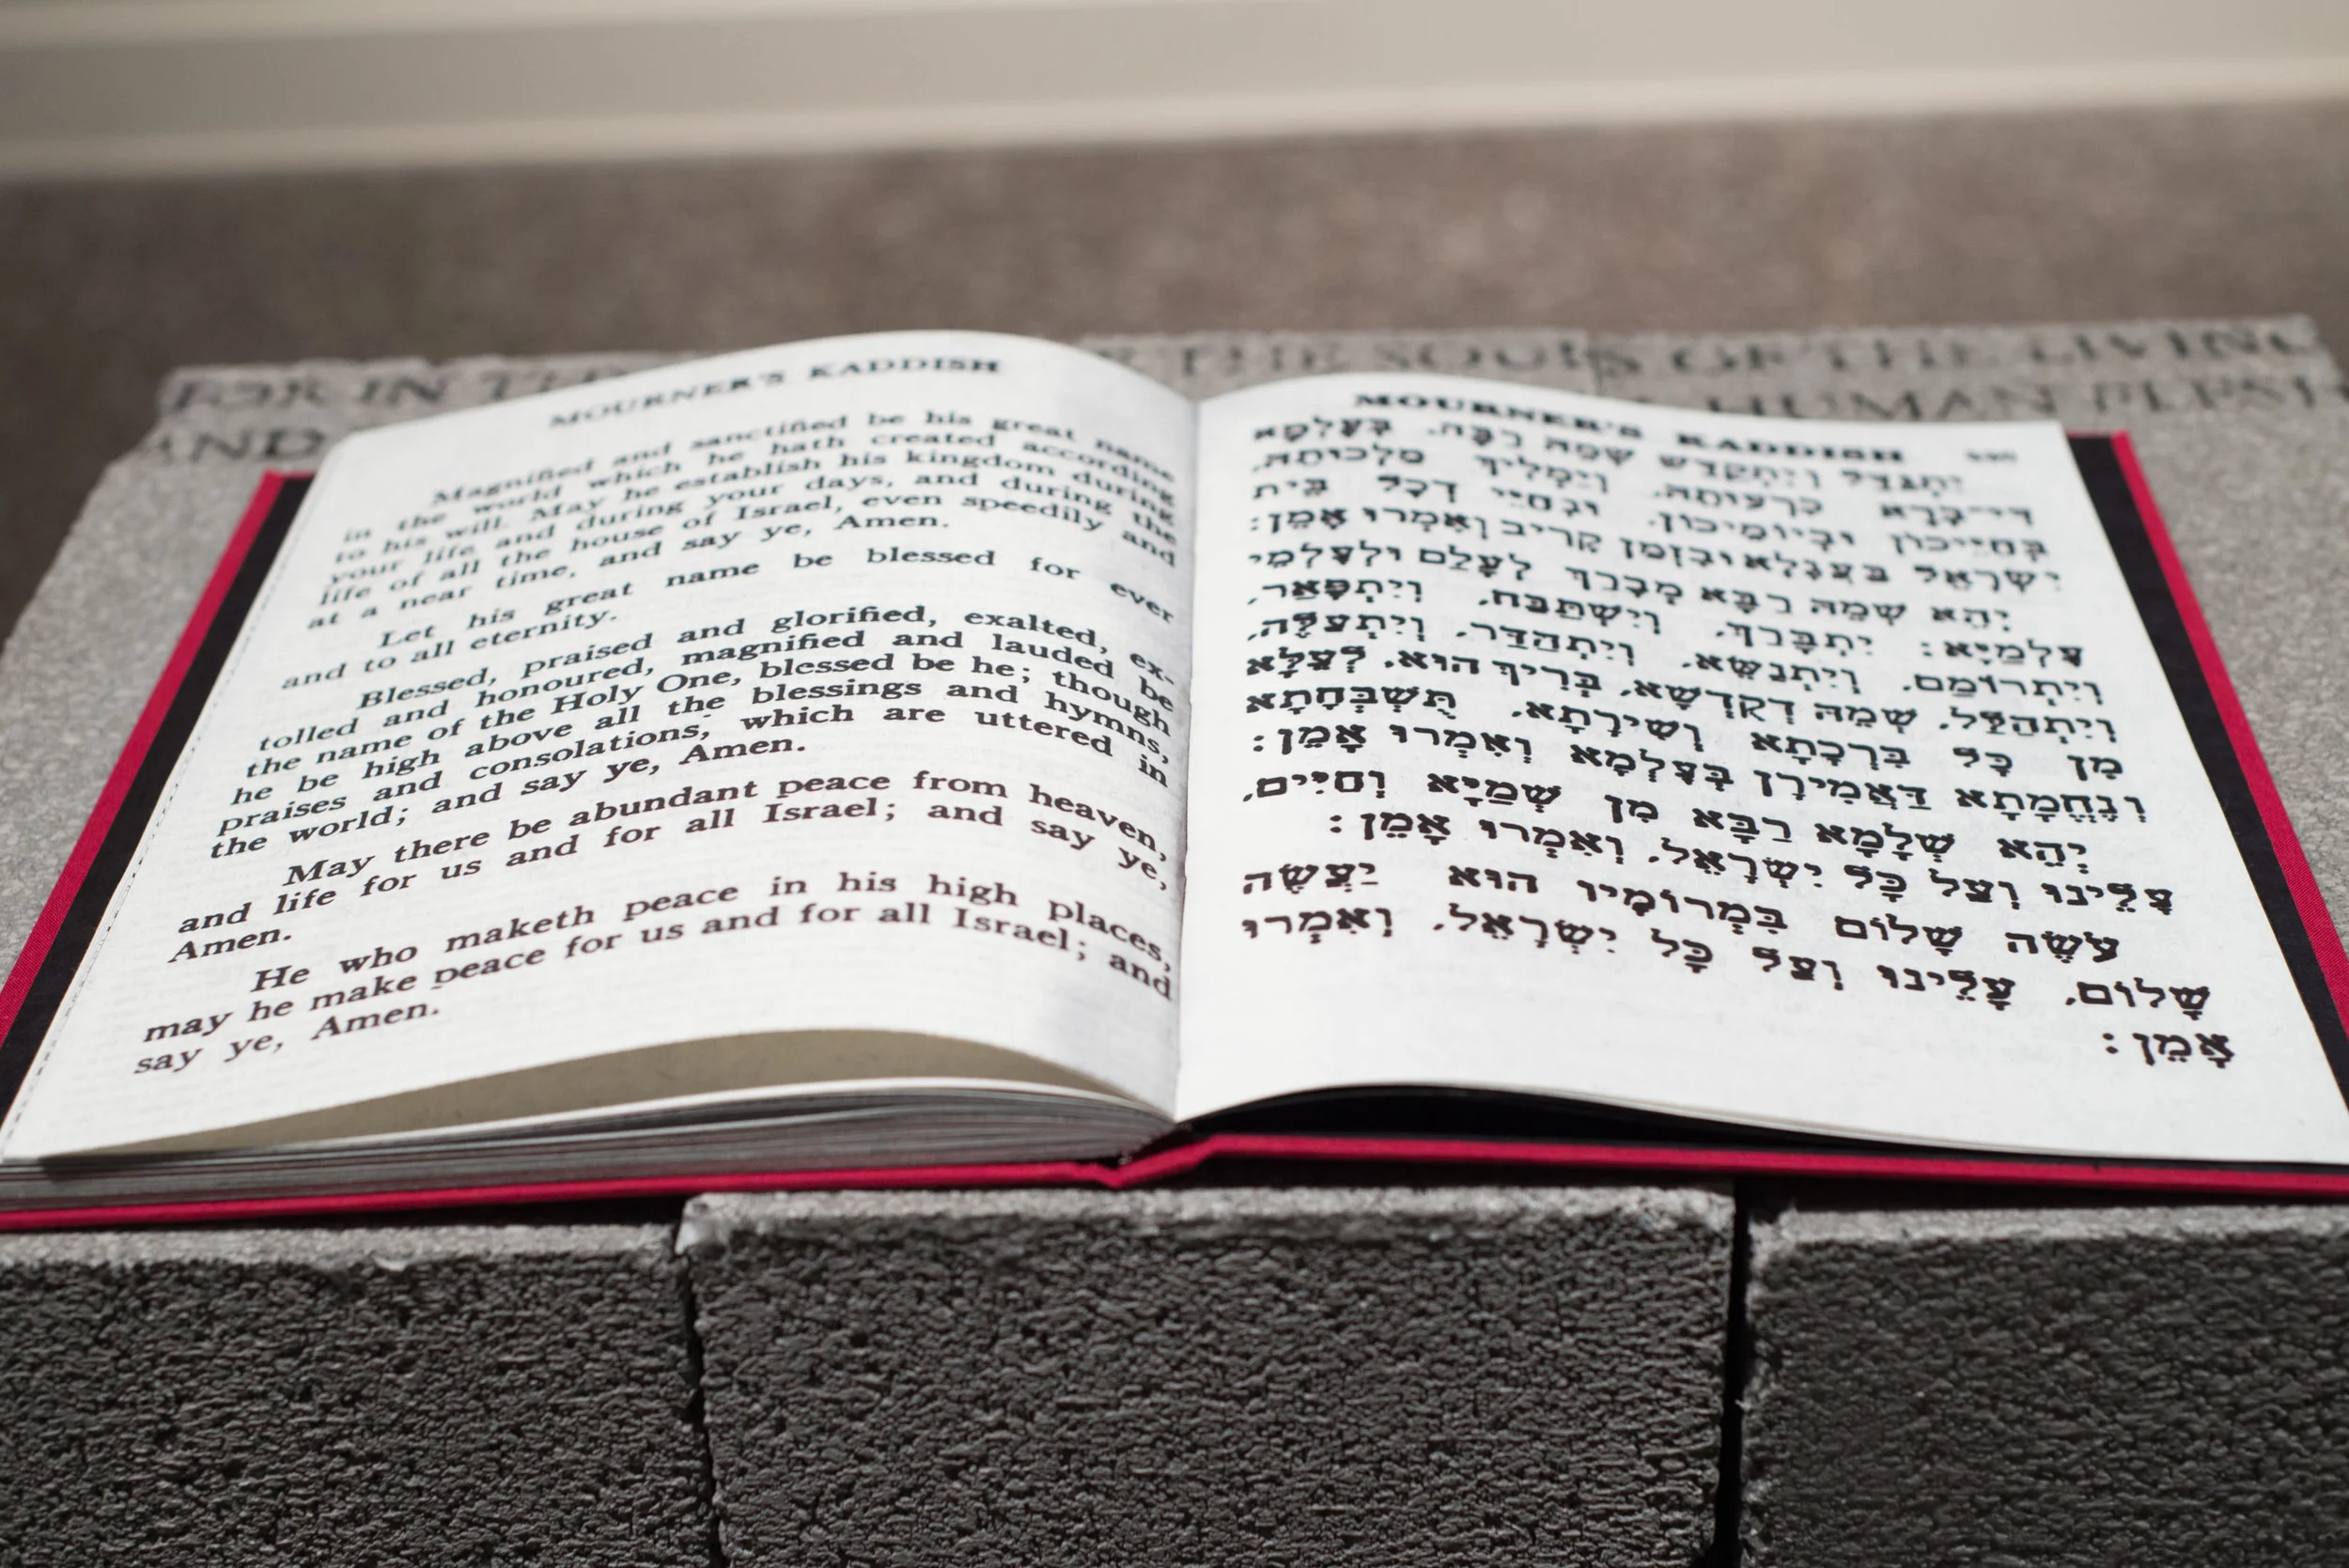 FOR IN THE SOULS OF THE LIVING
AND HUMAN
MOURNER'S KADDISH
Magnified and sanctified be his great name
in the world which he hath created according
to his will. May he establish his kingdom during
your life and during your days, and during the
life of all the house of Israel, even speedily and
at a near time, and say ye, Amen.
Let his great name be blessed for ever
and to all eternity.
Blessed, praised and glorified, exalted, ex-
tolled and honoured, magnified and lauded be
the name of the Holy One, blessed be he; though
he be high above all the blessings and hymns,
praises and consolations, which are uttered in
the world; and say ye, Amen.
May there be abundant peace from heaven,
and life for us and for all Israel; and say ye,
Amen.
He who maketh peace in his high places,
may he make peace for us and for all Israel; and
say ye, Amen.
MOURNER'S KADDISH
יִתְגַּדַּל וְיִתְקַדַּשׁ שְׁמֵהּ רַבָּא. בְּעָלְמָא
דִּי־בְרָא כִרְעוּתֵהּ. וְיַמְלִיךְ מַלְכוּתֵהּ,
בְּחַיֵּיכוֹן וּבְיוֹמֵיכוֹן. וּבְחַיֵּי דְכָל בֵּית
יִשְׂרָאֵל בַּעֲגָלָא וּבִזְמַן קָרִיב וְאִמְרוּ אָמֵן:
יְהֵא שְׁמֵהּ רַבָּא מְבָרַךְ לְעָלַם וּלְעָלְמֵי
עָלְמַיָּא: יִתְבָּרַךְ. וְיִשְׁתַּבַּח. וְיִתְפָּאַר,
וְיִתְרוֹמַם. וְיִתְנַשֵּׂא. וְיִתְהַדַּר. וְיִתְעַלֶּה,
וְיִתְהַלָּל. שְׁמֵהּ דְקֻדְשָׁא. בְּרִיךְ הוּא. לְעֵלָּא
מִן כָּל בִּרְכָתָא וְשִׁירָתָא. תֻּשְׁבְּחָתָא
וְנֶחֱמָתָא דַּאֲמִירָן בְּעָלְמָא וְאִמְרוּ אָמֵן:
יְהֵא שְׁלָמָא רַבָּא מִן שְׁמַיָּא וְחַיִּים,
עָלֵינוּ וְעַל כָּל יִשְׂרָאֵל. וְאִמְרוּ אָמֵן:
עֹשֶׂה שָׁלוֹם בִּמְרוֹמָיו הוּא יַעֲשֶׂה
שָׁלוֹם. עָלֵינוּ וְעַל כָּל יִשְׂרָאֵל. וְאִמְרוּ
אָמֵן: